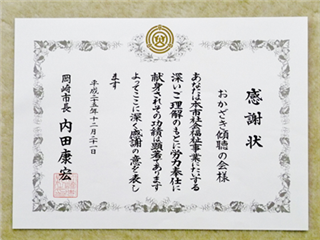 感謝状
おかざき傾聴の会様
あなたは本市社会福祉事業に対する
深いご理解のもとに労力奉仕に
献身されその功績は顕著であります
よってここに深く感謝の意を表し
ます
平成二十五年十二月二十一日
岡崎市長 内田康宏